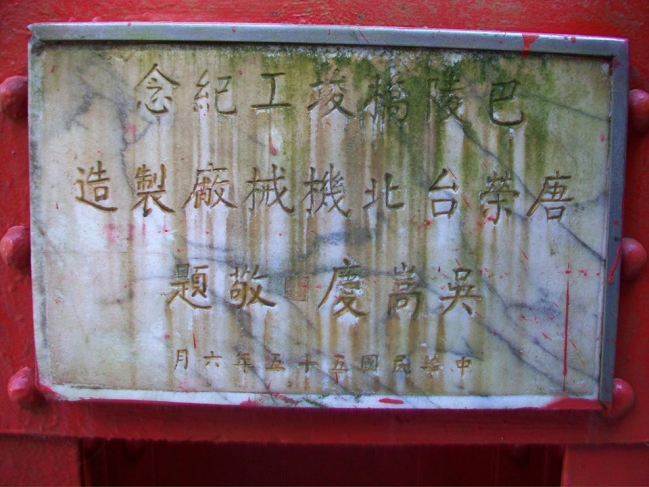 巴陵橋竣工紀念
唐榮台北機械廠製造
吳嵩慶敬題
中華民國五十五年六月